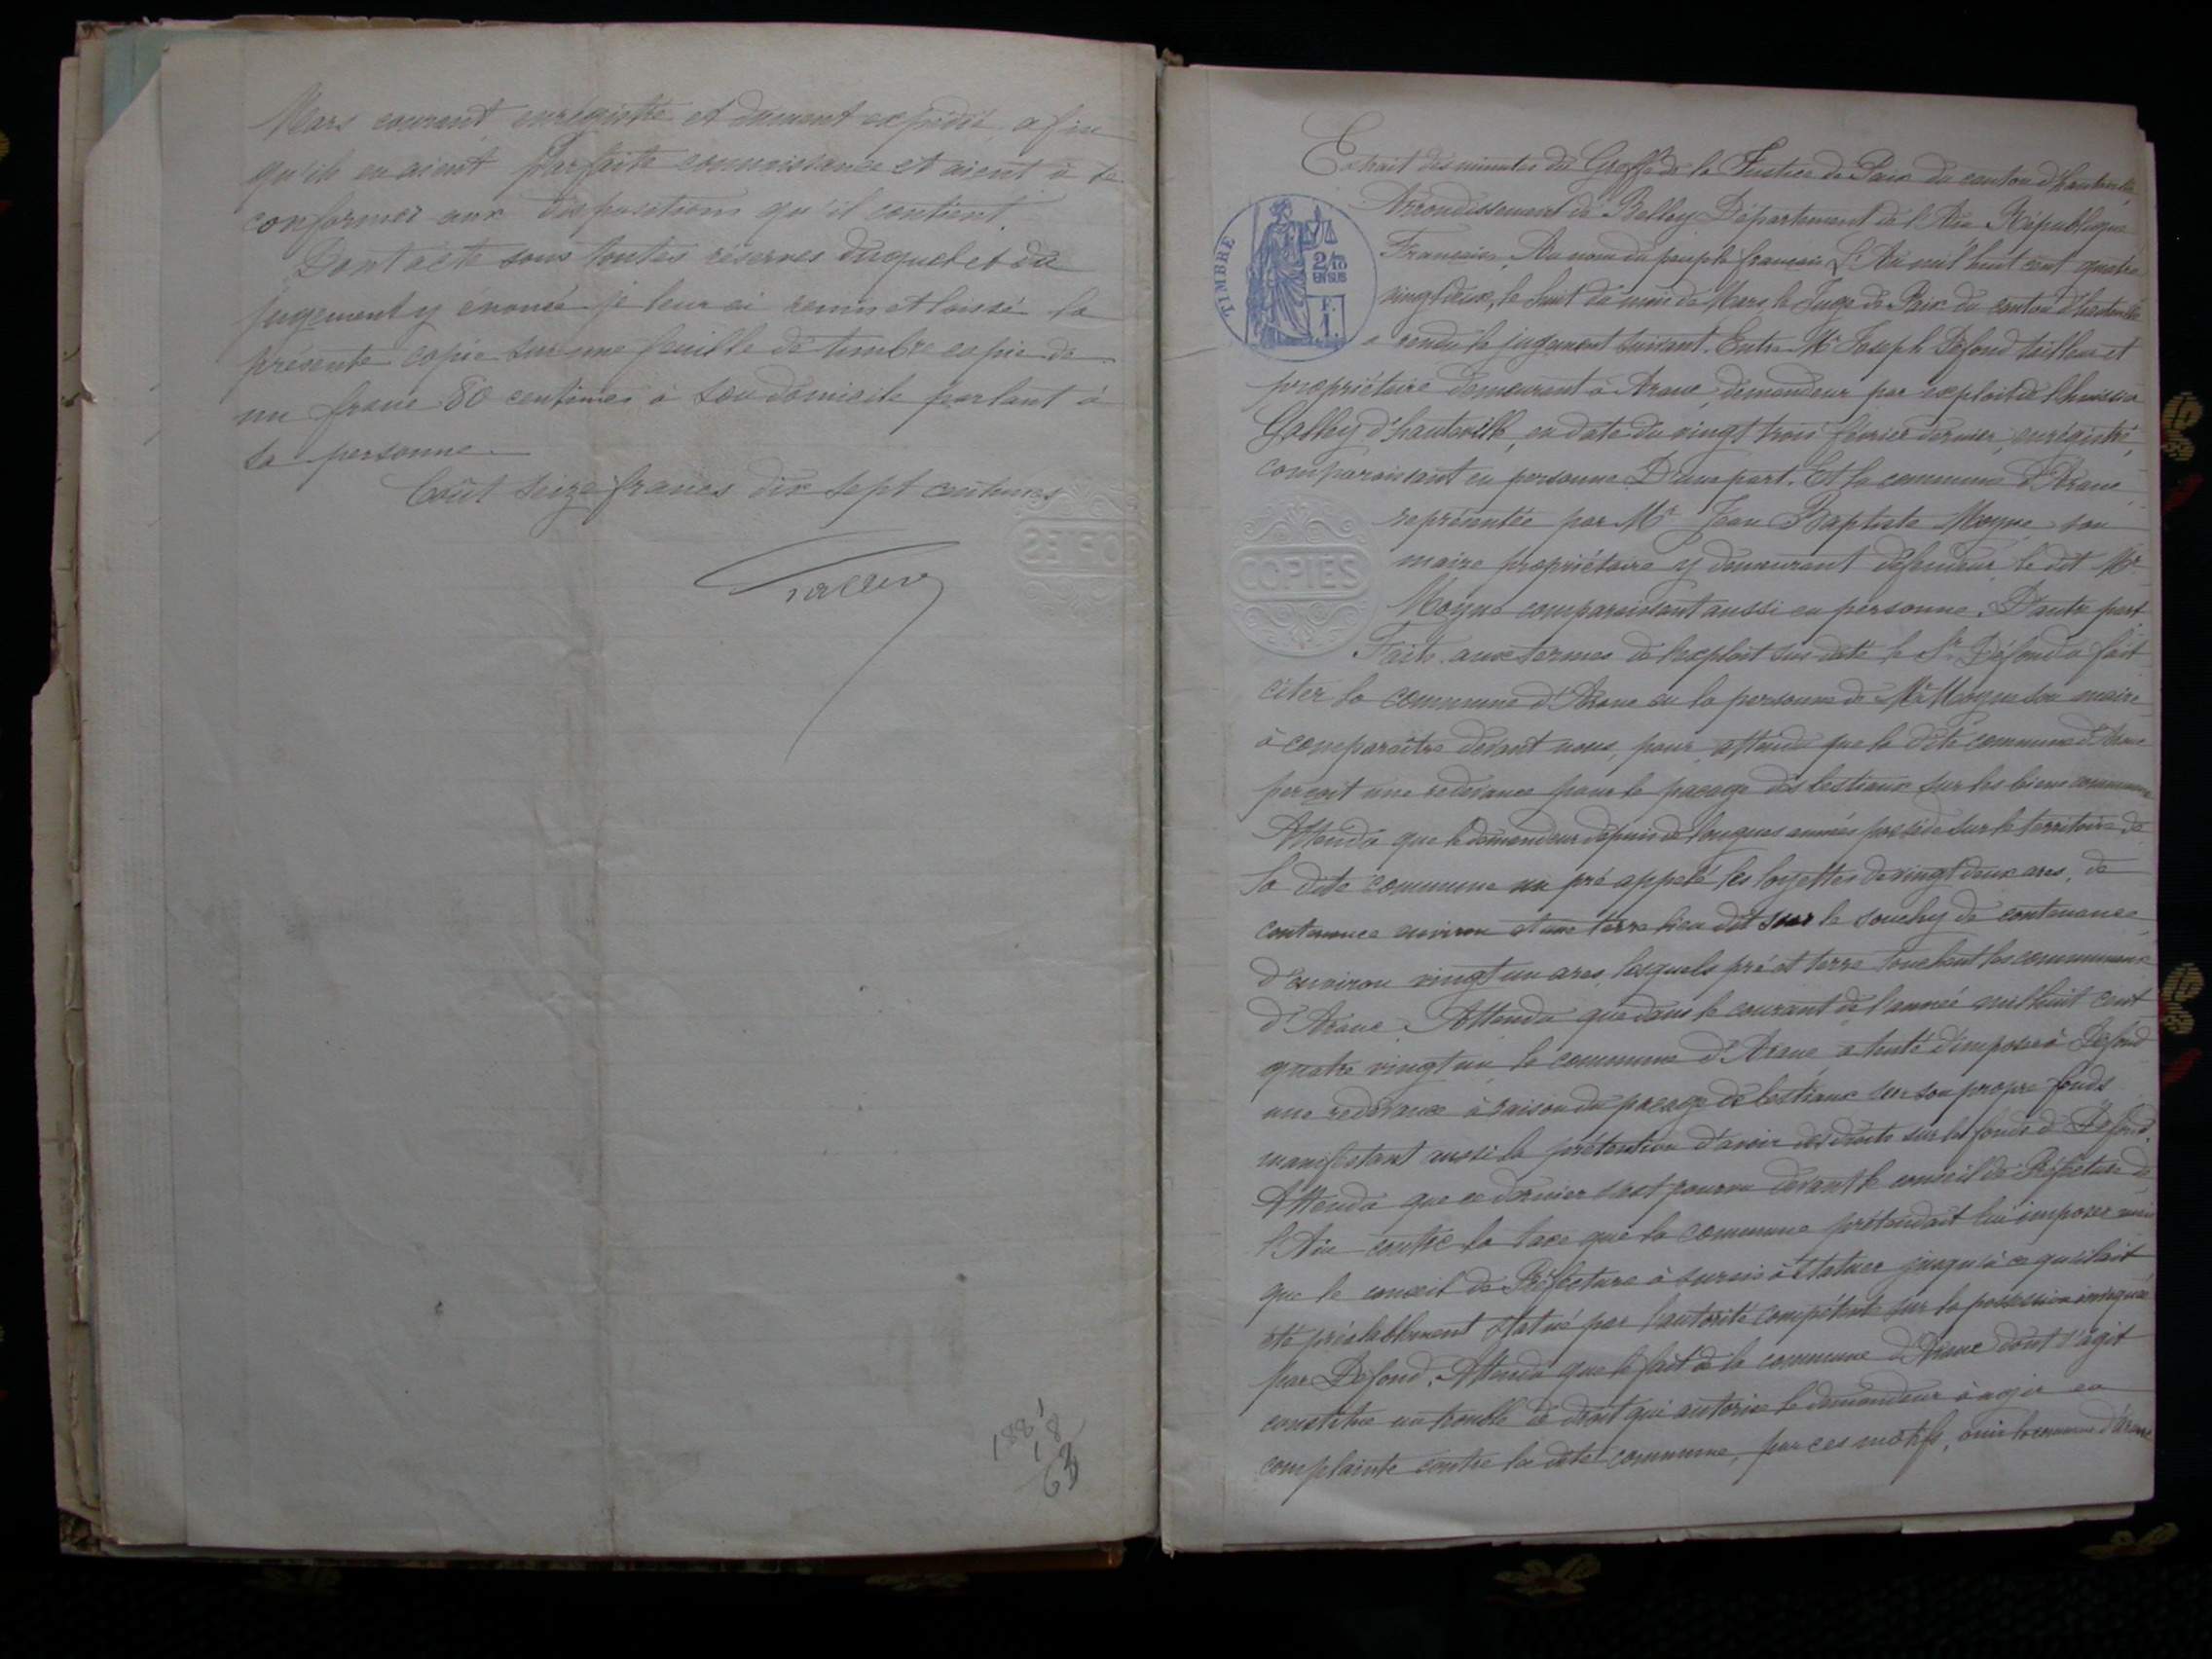 Mars courant enregistré et dument expédié, afin
qu'ils en aient parfaite connaissance et aient à se
conformer aux dispositions qu'il contient.
Dont acte sous toutes réserves duquel et du
jugement y énoncé je leur ai remis et laissé la
présente copie sur une feuille de timbre copie de
un franc 80 centimes à son domicile parlant à
sa personne.
Coût seize francs dix sept centimes
COPIES
1881
18
63
Extrait des minutes du Greffe de la Justice de Paix du canton d'hauteville
Arrondissement de Belley Département de l'Ain République
TIMBRE
2/10
EN SUS
F.
1.
Française Au nom du peuple français L'An mil huit cent quatre
vingt deux, le huit du mois de Mars, le Juge de Paix du canton d'hauteville
a rendu le jugement suivant. Entre Mr Joseph Défond tailleur et
propriétaire demeurant à Aranc, demandeur par exploit de l'huissier
Galley d'hauteville, en date du vingt trois février dernier, enregistré,
comparaissant en personne D'une part. Et la commune d'Aranc
représentée par Mr Jean Baptiste Moyne son
maire propriétaire y demeurant défendeur, le dit Mr
COPIES
Moyne comparaissant aussi en personne. D'autre part.
Faits. aux termes de l'exploit sus daté le Sr Défond a fait
citer la commune d'Aranc en la personne de Mr Moyne son maire
à comparaître devant nous, pour, attendu que la dite commune d'Aranc
perçoit une redevance pour le pacage des bestiaux sur les biens communaux
Attendu que le demandeur depuis de longues années possède sur le territoire de
la dite commune un pré appelé les loyettes de vingt deux ares, de
contenance environ et une terre lieu dit sur le souchy de contenance
d'environ vingt un ares, lesquels pré et terre touchent les communaux
d'Aranc. Attendu que dans le courant de l'année mil huit cent
quatre vingt un la commune d'Aranc a tenté d'imposer à Défond
une redevance à raison du pacage de bestiaux sur son propre fonds
manifestant aussi la prétention d'avoir des droits sur les fonds de Défond.
Attendu que ce dernier s'est pourvu devant le conseil de Préfecture de
l'Ain contre la taxe que la commune prétendait lui imposer mais
que le conseil de Préfecture à sursis à statuer jusqu'à ce qu'il ait
été préalablement statué par l'autorité compétente sur la possession invoquée
par Défond. Attendu que le fait de la commune d'Aranc dont s'agit
constitue un trouble de droit qui autorise le demandeur à agir en
complainte contre la dite commune, par ces motifs, ouir la commune d'Aranc